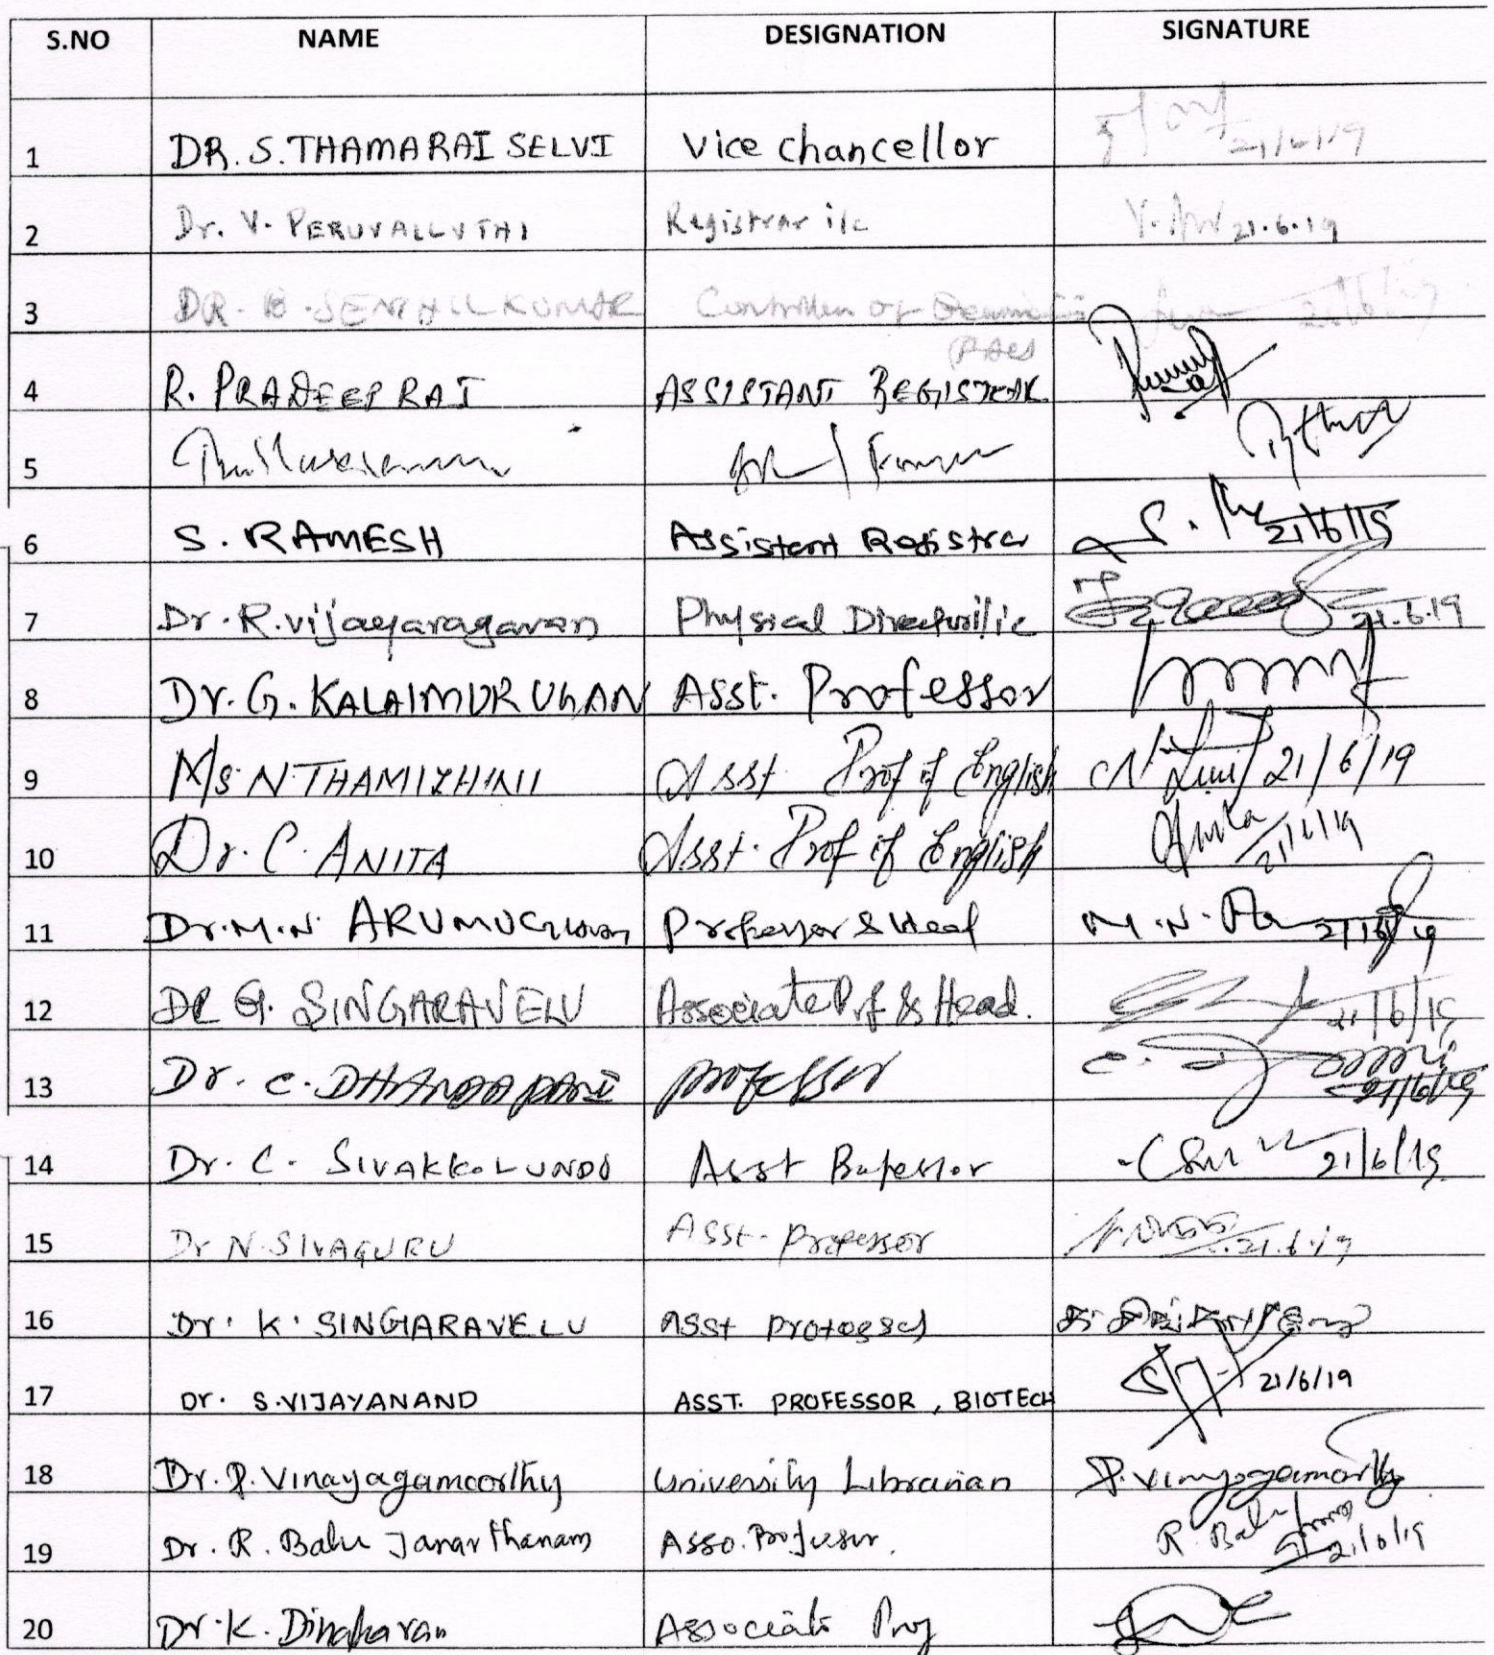 S.NO NAME DESIGNATION SIGNATURE
1 DR. S. THAMARAI SELVI Vice chancellor 21/6/19
2 Dr. V. PERUVALLUTHI Registrar i/c 21.6.19
3 DR. B. SENTHIL KUMAR Controller of 21/6/19
4 R. PRADEEP RAJ ASSISTANT REGISTRAR
5
6 S. RAMESH Assistant Registrar S. 21/6/19
7 Dr. R. vijayaragavan Physical Director i/c 21.6.19
8 Dr. G. KALAIMURUGAN Asst. Professor
9 Ms N THAMIZHINII Asst. Prof of English 21/6/19
10 Dr. C. ANITA Asst. Prof of English Anita 21/6/19
11 Dr. M. N. ARUMUGHAM Professor & Head M. N. 21/6/19
12 DR G. SINGARAVELU Associate Prof & Head. 21/6/19
13 Dr. C. DHANDAPANI professor 21/6/19
14 Dr. C. SIVAKKOLUNDU Asst Professor 21/6/19
15 Dr N. SIVAGURU Asst. Professor 21.6.19
16 Dr. K. SINGARAVELU Asst
17 Dr. S. VIJAYANAND ASST. PROFESSOR, BIOTECH 21/6/19
18 Dr. P. Vinayagamoorthy University Librarian P. Vinayagamoorthy
19 Dr. R. Babu Janarthanam Asso. Professor. R. Babu 21/6/19
20 Dr. K. Dinakaran Associate Prof